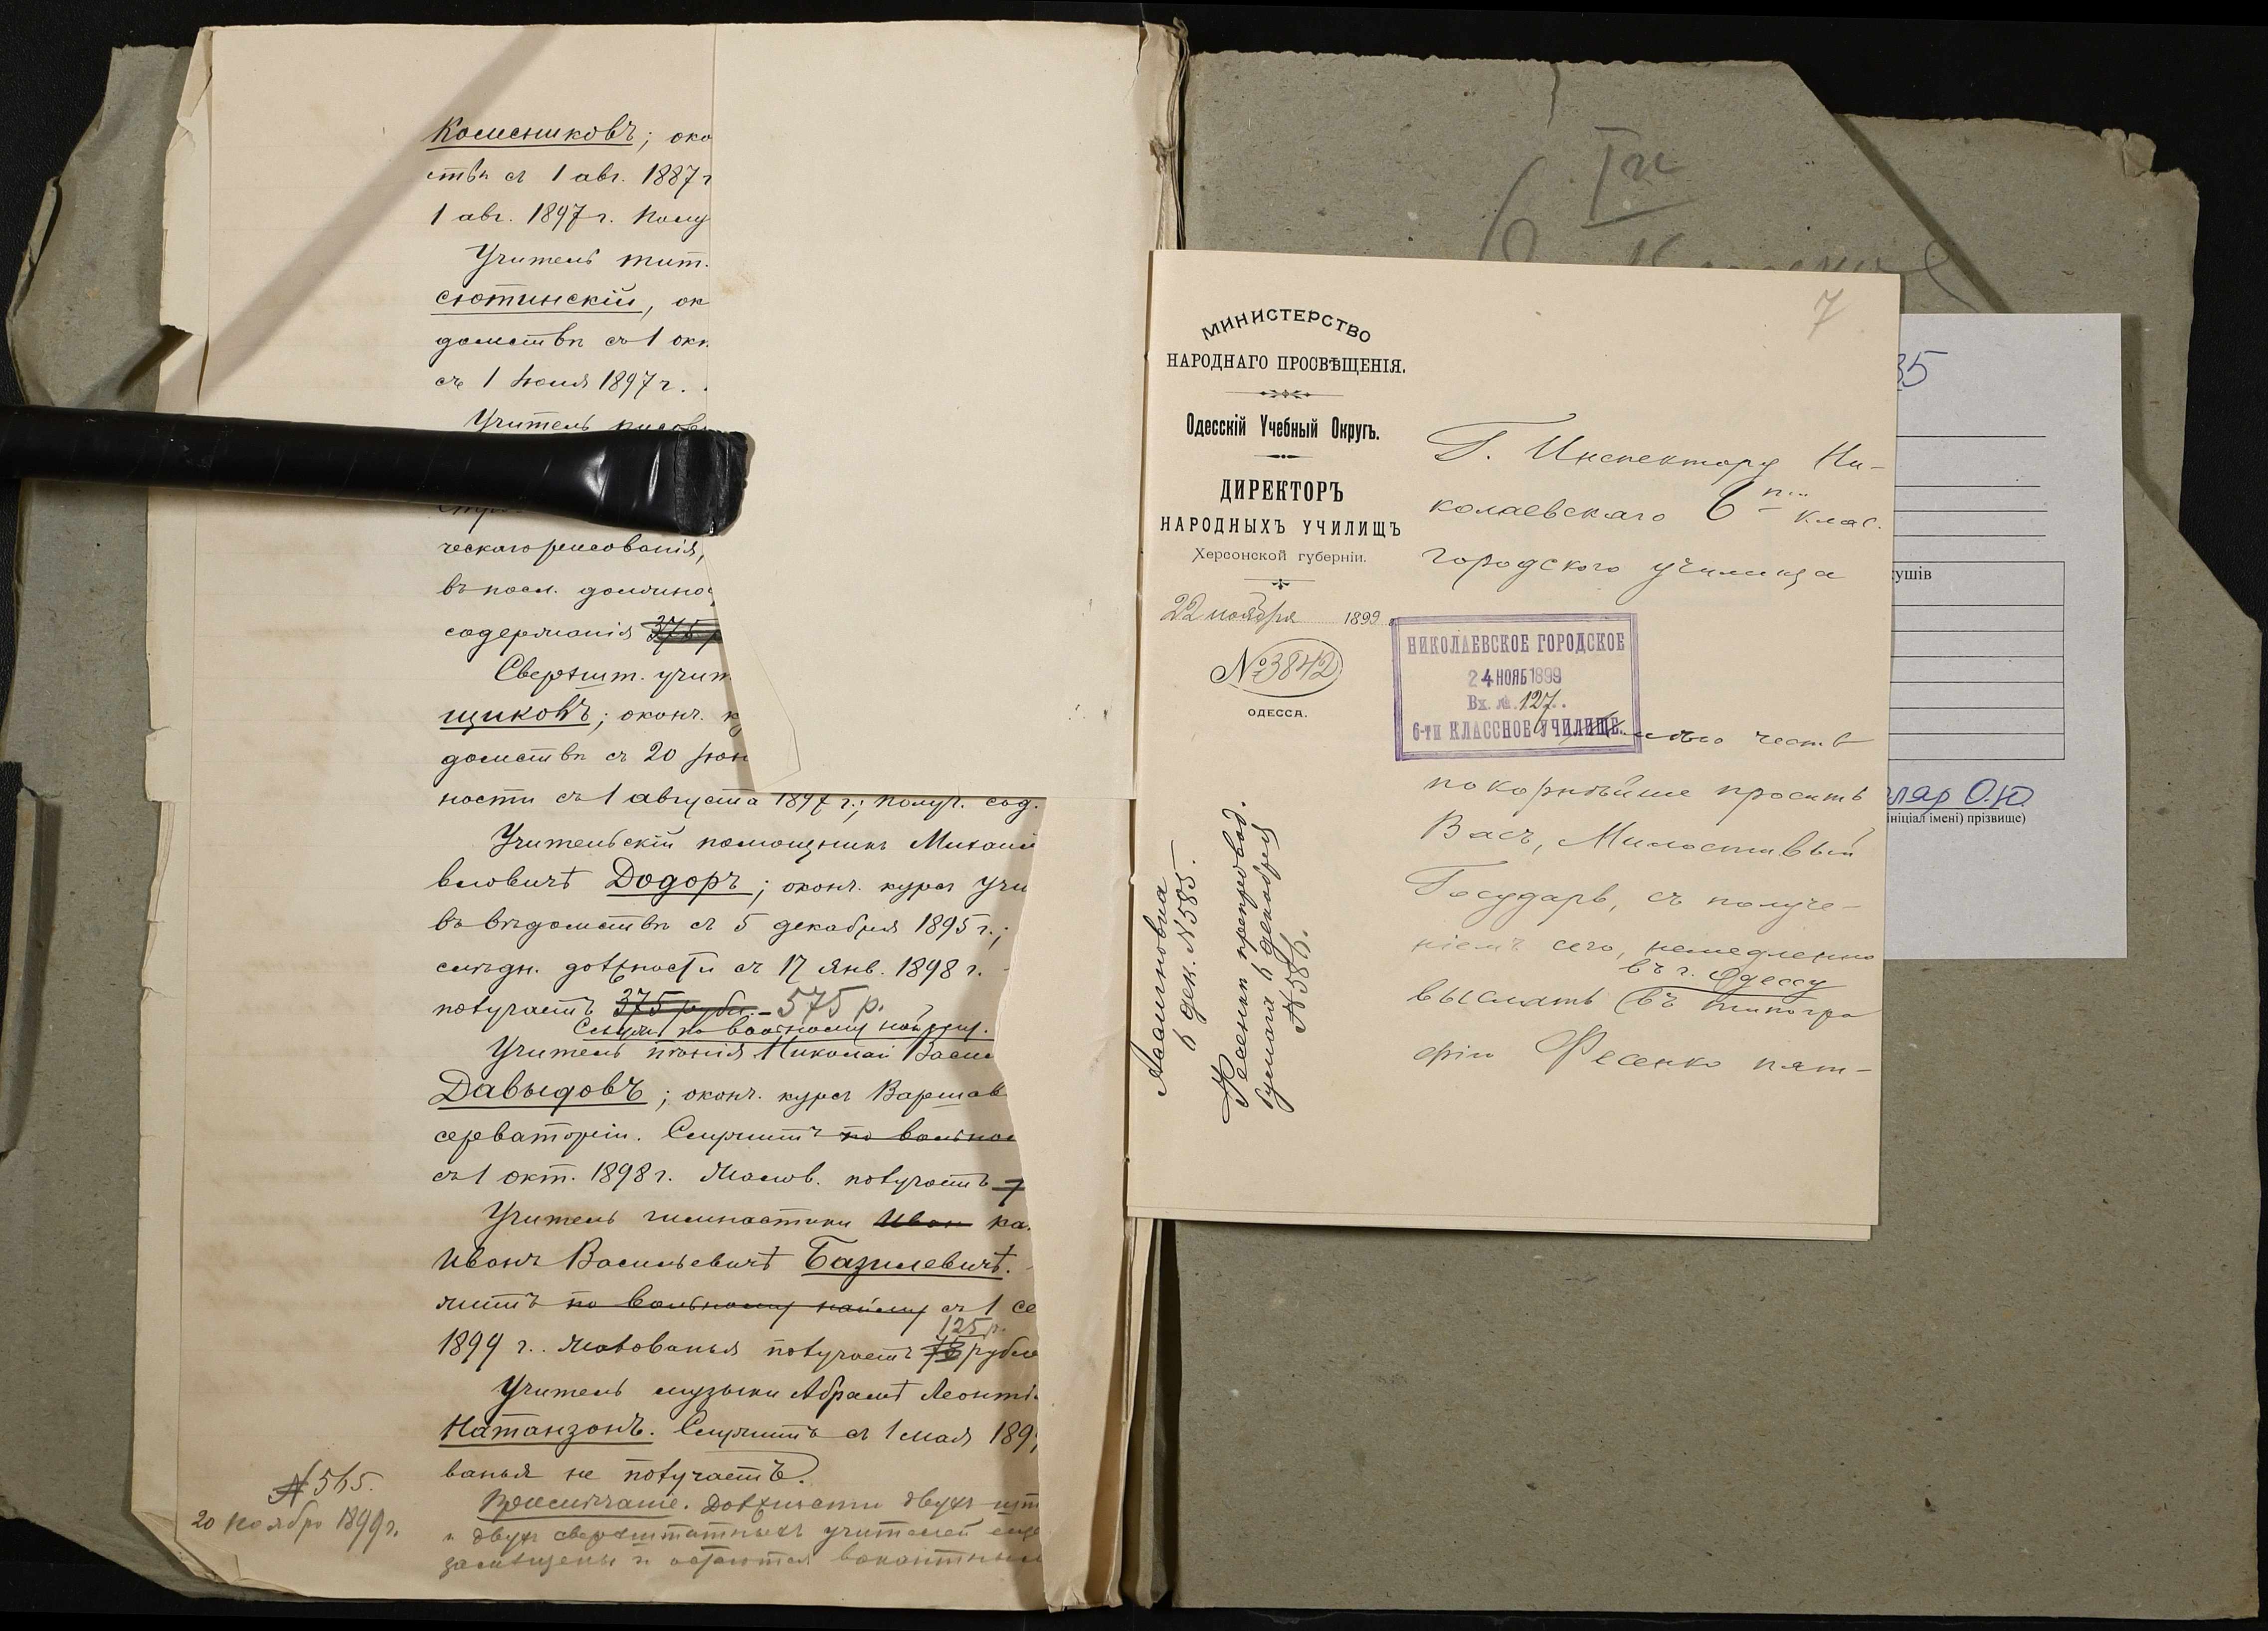 Колесниковъ; око
ствѣ съ 1 авг. 1887 г
1 авг. 1897 г. Полу
Учитель тит.
сютинскій, ок
домствѣ съ 1 окт.
съ 1 Іюля 1897 г.
Учитель рисов
ческаго рисованія,
въ посл. должно
содержанія 375 р
Сверхшт. учит
щиковъ; оконч. к
домствѣ съ 20 Іюн
ности съ 1 августа 1897 г.; получ. сод.
Учительскій помощникъ Михаил
вловичъ Додоръ; оконч. курсъ Учи
въ вѣдомствѣ съ 5 декабря 1895 г.;
слѣдн. должности съ 17 Янв. 1898 г.
получаетъ 375 рубл. - 575 р.
Служ. по вольному найму.
Учитель пѣнія Николай Васил
Давыдовъ; оконч. курсъ Варшав
серваторіи. Служитъ по вольном
съ 1 окт. 1898 г. Жалов. получаетъ 7
Учитель гимнастики Иван ка.
Иванъ Васильевичъ Базилевичъ.
житъ по вольному найму съ 1 се
125 р.
1899 г. Жалованья получаетъ 75 рубле
Учитель музыки Абрамъ Леонті
Натанзонъ. Служитъ съ 1 мая 189
ванья не получаетъ.
Примѣчаніе. Должности двухъ шт
и двухъ сверхштатныхъ учителей еще
замѣщены и остаются вакантными
№ 565.
20 ноября 1899 г.
7
МИНИСТЕРСТВО
НАРОДНАГО ПРОСВѢЩЕНІЯ.
Одесскій Учебный Округъ.
ДИРЕКТОРЪ
НАРОДНЫХЪ УЧИЛИЩЪ
Херсонской губерніи.
22 ноября 1899
№ 3842
ОДЕССА.
Г. Инспектору Ни-
колаевскаго 6 ти клас.
городского училища
НИКОЛАЕВСКОЕ ГОРОДСКОЕ
24 НОЯБ 1899
Вх. №. 127.
6-ти КЛАССНОЕ УЧИЛИЩЕ.
Имѣю честь
покорнѣйше просить
Васъ, Милостивый
Государь, съ получе-
ніемъ сего, немедленно
въ г. Одессу
выслать (въ типогра
фію Фесенко пят-
6 дек. № 585.
Фесенки препровод.
бумага 6 декабря
№ 586.
IV
6
35
ушів
ляр О.Ю.
ініціал імені) прізвище)